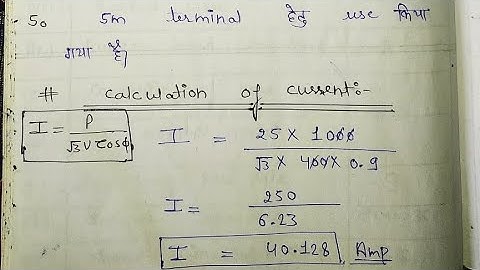 So 5m terminal हेतु use किया
गया है।
# calculation of current:-
I = P / √3 V cosφ
I = 25 × 1000 / √3 × 400 × 0.9
I = 250 / 6.23
I = 40.128 Amp